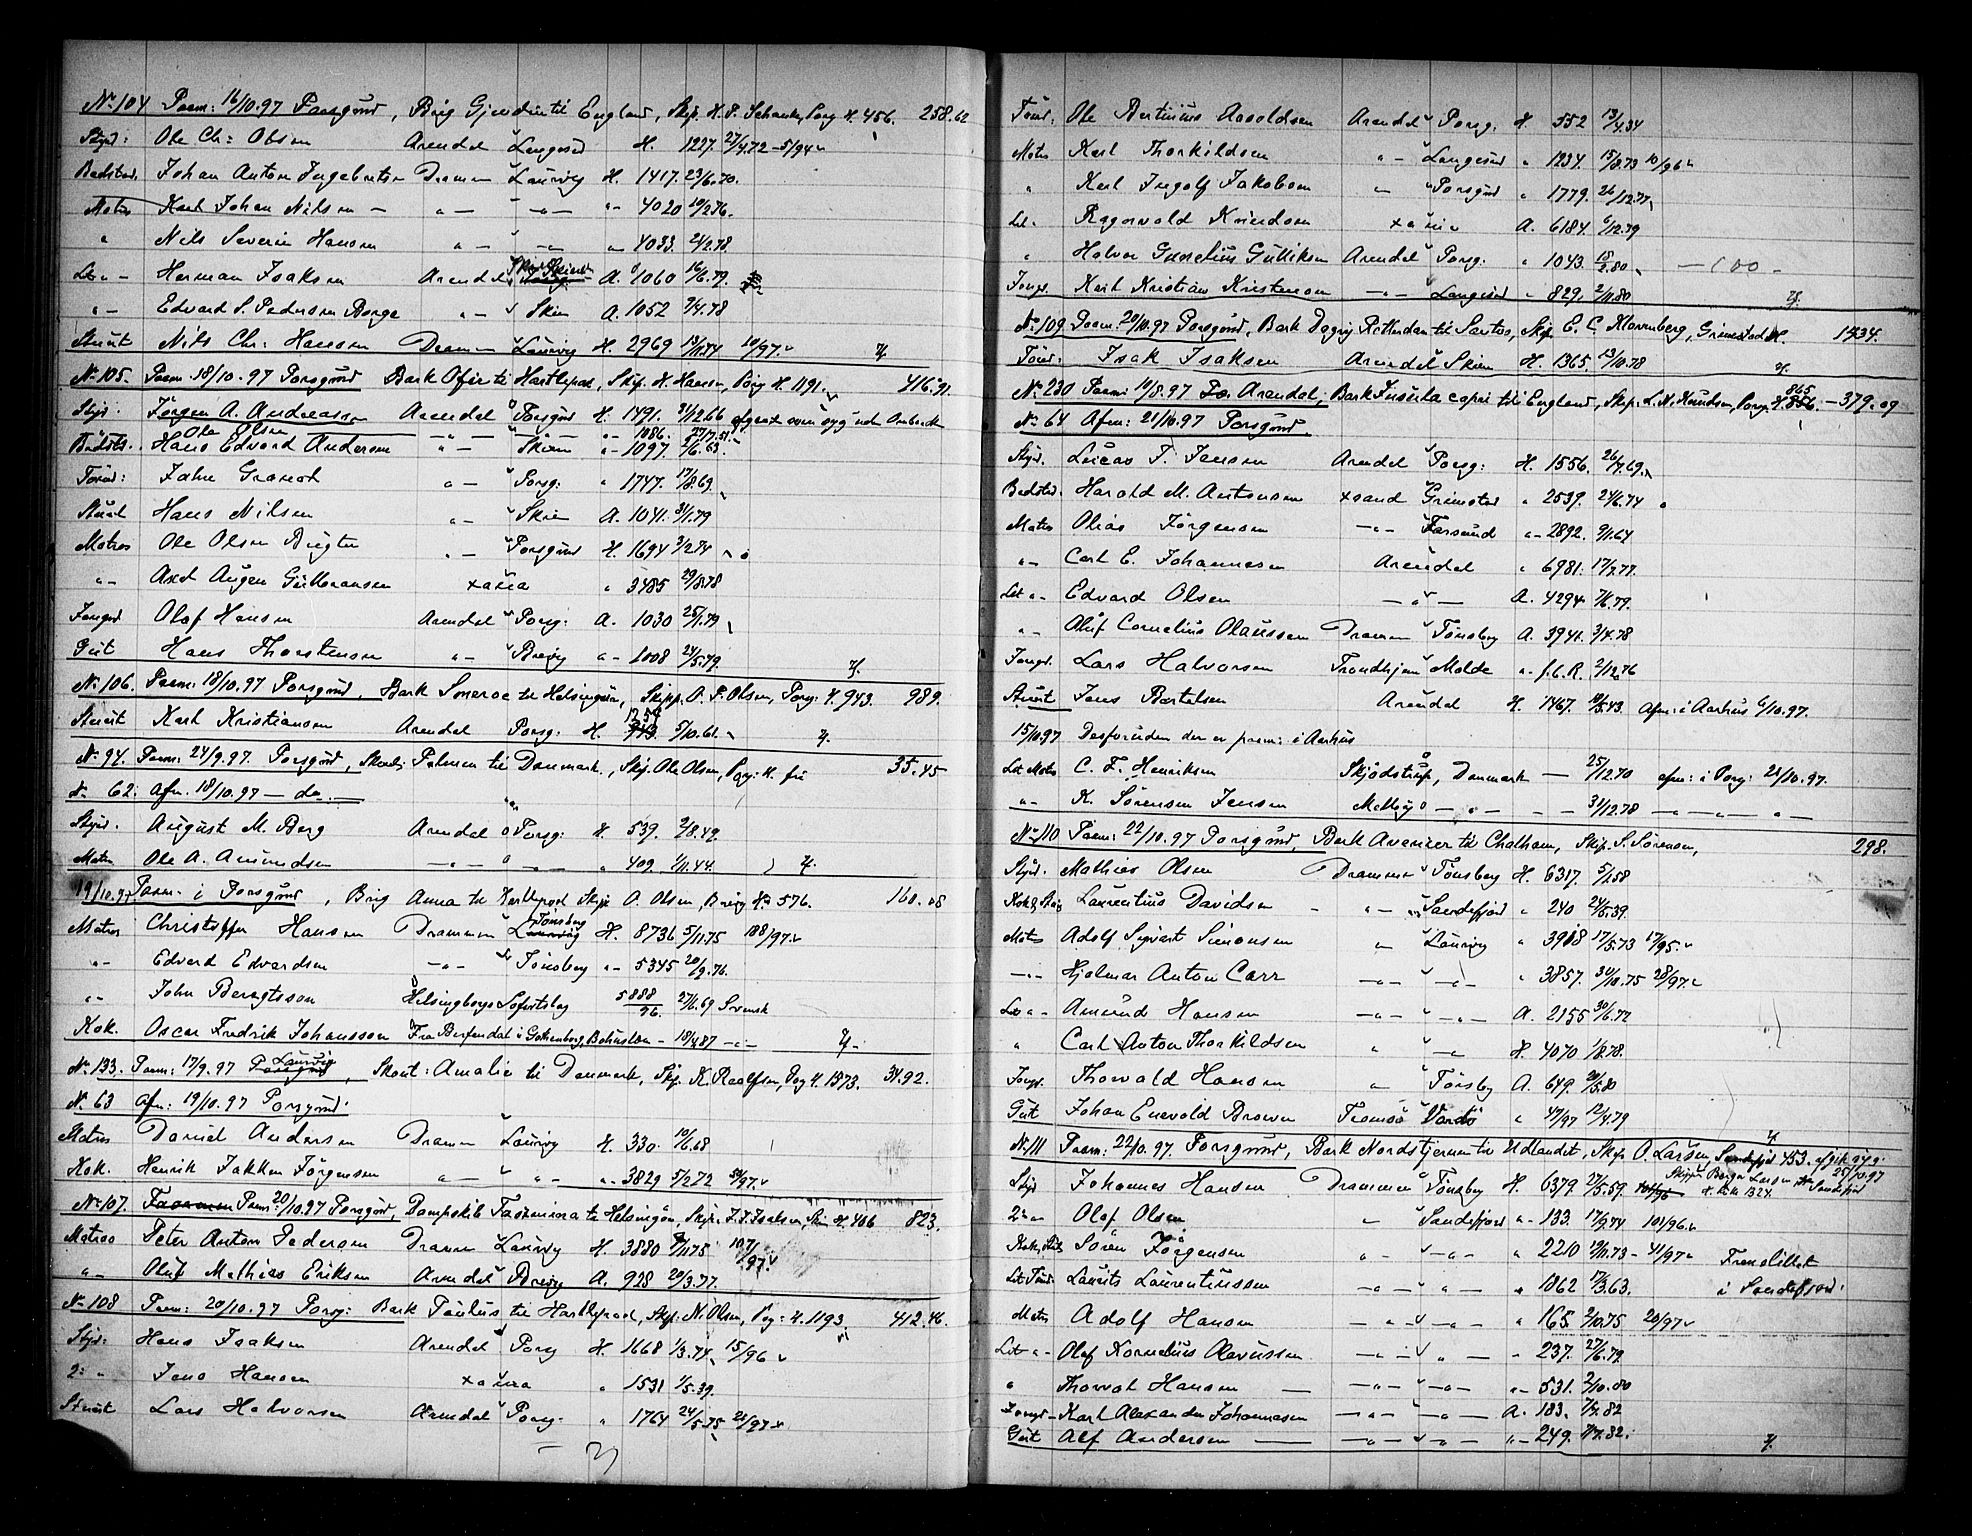 No 104 Paam: 16/10.97 Porsgrund, Brig Gjendin til England, Skip. H. P. Schanke, Porsg H. 456. 258.62
Styrd: Ole Chr: Olsen Arendal Langesund H. 1227. 27/4.72 – 5/94
Bødsted. Johan Anton Ingebretsen Drammen Laurvig H. 1417. 23/6.70.
Matros Karl Johan Nilsen – " – – " – " – 4020 19/2.76.
" Nils Severin Hansen " – – " – " 4033. 21/2.78
Let " – Herman Isaksen Arendal Skien A. 1060 16/6.79.
" – Edvard S. Pedersen Borge " – Skien A. 1052 2/4.78
Stuert Nils Chr: Hansen Drammen Laurvig H. 2969 13/11.74 10/97.
No 105. Paam 18/10.97 Porsgrund Bark Ofir til Hartlepool, Skip. H. Hansen, Porsg H. 1191. 416.91.
Styd. Jørgen A. Andreassen Arendal Porsgrund H. 1491. 31/12.66 afgaaet som syg ved Ombord
Ole Olsen " – – " – " – 1086. 27/7.51.
Bødsted. Hans Edvard Andersen " – Skien " – 1097 2/6.63.
Tømd: Johan Graner " – Porsg: " 1747. 17/8.69
Stuert Hans Nilsen " – Skien A. 1041. 31/1.79
Matros Ole Olsen Bugten " – Porsgrund H. 1694 3/2.74
" – Axel August Gulbransen x ania " 3485 29/8.78
Jungm Olaf Hansen Arendal Porsg: A. 1030 25/1.79
Gut Hans Thorstensen " – Brevig " – 1008 24/5.79.
No 106. Paam: 18/10.97 Porsgrund, Bark Smerve til Helsingør, Skipp. O. P. Olsen, Porsg: H. 943. 989.
Stuert Karl Kristiansen Arendal Porsg: H. 1254 5/10.61.
No. 94. Paam: 24/9.97. Porsgrund, Skonn: Palmen til Danmark, Skip. Ole Olsen, Porsg. H. fri 35.45
No 62: Afm. 18/10.97 – do. –
Styd. August M. Berg Arendal Porsg: H. 539. 2/8.49.
Matros Ole A. Amundsen – " – – " – " 409. 1/11.44.
19/10.97 Paam. i Porsgrund, Brig Anna til Hartlepool Skip O. Olsen, Brevig H. 576. 160.08
Matros Christoffer Hansen Drammen Tønsberg H. 8736 5/11.75 108/97.
" – Edvard Edvardsen – " – Tønsberg " – 5345 20/9.76.
" – John Bengtsson Helsingborgs 5888/96. 27/6.69 Svensk
Kok. Oscar Fredrik Johansson Fra Berfendal i Gothenborg, Bohuslæn – 18/4.87 – " –
No 133. Paam: 17/9.97 Laurvig, Skont: Amalie til Danmark, Skip. K. Roalfsen, Porsg H. 1373. 31.92.
No. 63 Afm: 19/10.97 Porsgrund.
Matros Daniel Andersen Drammen Laurvig H. 330. 10/6.68
Kok. Henrik Jakken Jørgensen " – " – " – 3829 5/2.72 50/97.
No 107. Paam: 20/10.97 Porsgrund, Dampskib Taormina til Helsingør, Skip. J. T. Isaksen, Skien H. 466 823.
Matros Peter Anton Pedersen Drammen Laurvig H. 3880 9/11.75 107/97.
" – Oluf Mathias Eriksen Arendal Brevig A. 928 20/3.77.
No 108 Paam: 20/10.97 Porsg: Bark Paulus til Hartlepool, Skip. N. Olsen, Porsg: H. 1193. 412.46.
Styd: Hans Isaksen Arendal Porsg H. 1668 1/3.74 15/96
2: " Jens Hansen x ania " 1531 1/5.39.
Stuert Lars Halvorsen Arendal Porsg. " 1764 24/5.75 21/97
Tømd: Ole Bertinius Aroldsen Arendal Porsg: H. 552 13/4.34
Matros Karl Thorkildsen " – Langesund " 1234. 15/8.73 10/96
" Karl Ingolf Jakobsen " – Porsgrund " 1779. 26/12.77
Let – Ragnvald Kvindson x ania A. 6184. 6/12.79
" Halvor Gunelius Gulliksen Arendal Porsg: " 1043. 18/2.80 – 100 –
Jungm. Karl Kristian Kristensen – " – Langesund " 829. 2/11.80
No 109. Paam: 20/10.97 Porsgrund, Bark Dagny Rotterdam til Santos, Skip. E. C. Klovenberg, Grimstad H. 1534.
Tømd: Isak Isaksen Arendal Skien H. 1365. 13/10.78
No 230 Paam: 10/8.97 Fra Arendal, Bark Insula capri til England, Skip. L. N. Knudsen, Porsg. H. 865 – 379.09
No 64 Afm: 21/10.97 Porsgrund.
Styd. Lucas T. Jensen Arendal Porsg: H. 1556. 26/7.69
Bødsted. Harald M. Antonsen x sand Grimstad " 2539. 24/6.74
Matros Olias Jørgensen – " – Farsund " – 2892. 9/11.64
" – Carl E. Johannesen Arendal " 6981. 17/7.77.
Let " – Edvard Olsen – " – A. 4294. 7/6.79.
" – Oluf Cornelius Olaussen Drammen Tønsberg A. 3941. 3/4.78
Jungm. Lars Halvorsen Trondhjem Molde " f.C.R. 2/12.76
Stuert Jens Bertelsen Arendal H. 1467. 18/5.43. Afm: i Aarhus 6/10.97.
15/10.97 Desforuden der er paam: i Aarhus
Let Matros C. F. Henriksen Skjødstrup, Danmark – 25/12.70 afm: i Porsg: 21/10.97.
" – K. Sørensen Jensen – " – – 31/12.78 – " – " – " –
No 110 Paam: 22/10.97 Porsgrund, Bark Avenier til Chatham, Skip. S. Sørensen, 298.
Styd. Mathias Olsen Drammen Tønsberg H. 6317. 5/1.58
Kok & Stu Laurentius Davidsen – " – Sandefjord " 240 24/5.39.
Matros Adolf Sigvart Simonsen " Laurvig " 3908 17/5.73 17/95.
– " – Hjalmar Anton Carr – " – – " – " 3857. 30/10.75 28/97.
Let " – Amund Hansen – " – – " – A. 2155 30/6.72
" Carl Anton Thorkildsen " – " – H. 4070 1/8.78.
Jungm. Thorvald Hansen " Tønsbg A. 649. 20/5.80
Gut Johan Enevold Brown Tromsø Vardø " 47/97 12/4.79
No 111 Paam: 22/10.97. Porsgrund, Bark Nordstjernen til Udlandet, Skip. O. Larsen Sandefjord 453. afgik syg. 25/10.97
Styd Johannes Hansen Drammen Tønsberg H. 6379. 27/5.59. Skipper Birger Larsen
2: " – Olaf Olsen " Sandefjord " – 133. 17/9.74 101/96.
Kok, Stu Søren Jørgensen " – – " – " 2210 19/11.73 – 41/97 Frasillet
Let Tømd Laurits Laurentiussen – " – " – " 1062 17/3.63. i Sandefjord.
Matros Adolf Hansen – " – – " – " 165. 2/10.75 20/97
Let " – Olaf Kornelius Olavussen – " – " – " 237. 27/6.79.
" Thorvald Hansen – – " – – " – " – 531. 2/10.80
Jungm – Karl Alexander Johannesen – " – – " – A. 183. 7/7.82
Gut Alf Andersen – – " – " – " – 249. 7/7.82.